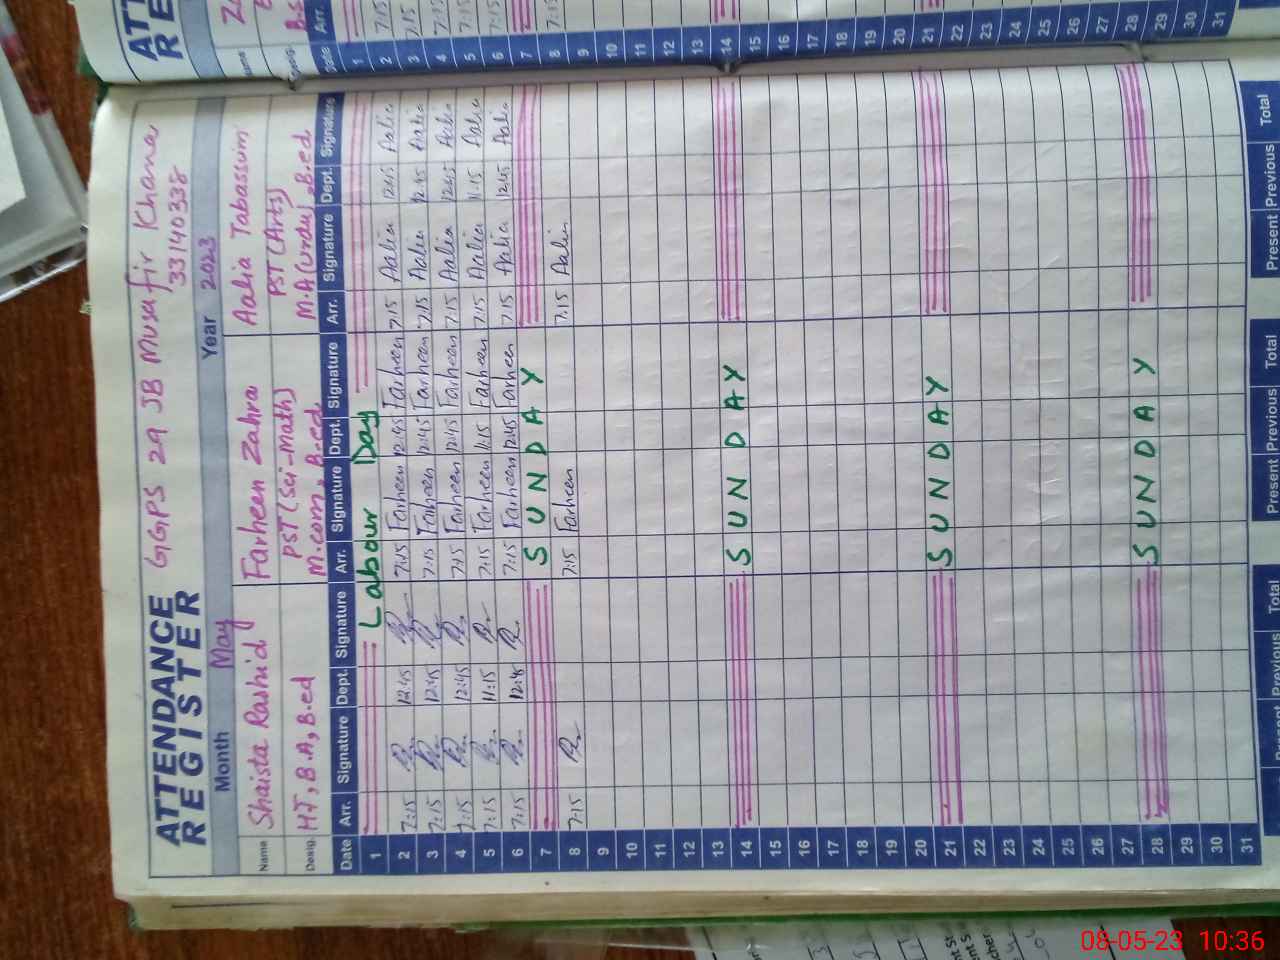 ATTENDANCE REGISTER
GGPS 29 JB Musafir Khana
33140338
Month May Year 2023
Name Shaista Rashid Farheen Zahra Aalia Tabassum
Desig. H.T, B.A, B.ed PST (Sci-Math) PST (Arts)
M.com, B.ed M.A (Urdu), B.ed
Date Arr. Signature Dept. Signature Arr. Signature Dept. Signature Arr. Signature Dept. Signature
1 Labour Day
2 7:15 12:45 7:15 Farheen 12:45 Farheen 7:15 Aalia 12:45 Aalia
3 7:15 12:45 7:15 Farheen 12:45 Farheen 7:15 Aalia 12:45 Aalia
4 7:15 12:45 7:15 Farheen 12:45 Farheen 7:15 Aalia 12:45 Aalia
5 7:15 11:15 7:15 Farheen 11:15 Farheen 7:15 Aalia 11:15 Aalia
6 7:15 12:45 7:15 Farheen 12:45 Farheen 7:15 Aalia 12:45 Aalia
7 SUNDAY
8 7:15 7:15 Farheen 7:15 Aalia
9
10
11
12
13
14 SUNDAY
15
16
17
18
19
20
21 SUNDAY
22
23
24
25
26
27
28 SUNDAY
29
30
31
Present Previous Total Present Previous Total Present Previous Total
Name
Date Arr.
1
2 7:15
3 7:15
4 7:15
5 7:15
6 7:15
7
8 7:15
9
10
11
12
13
14
15
16
17
18
19
20
21
22
23
24
25
26
27
28
29
30
31
08-05-23 10:36